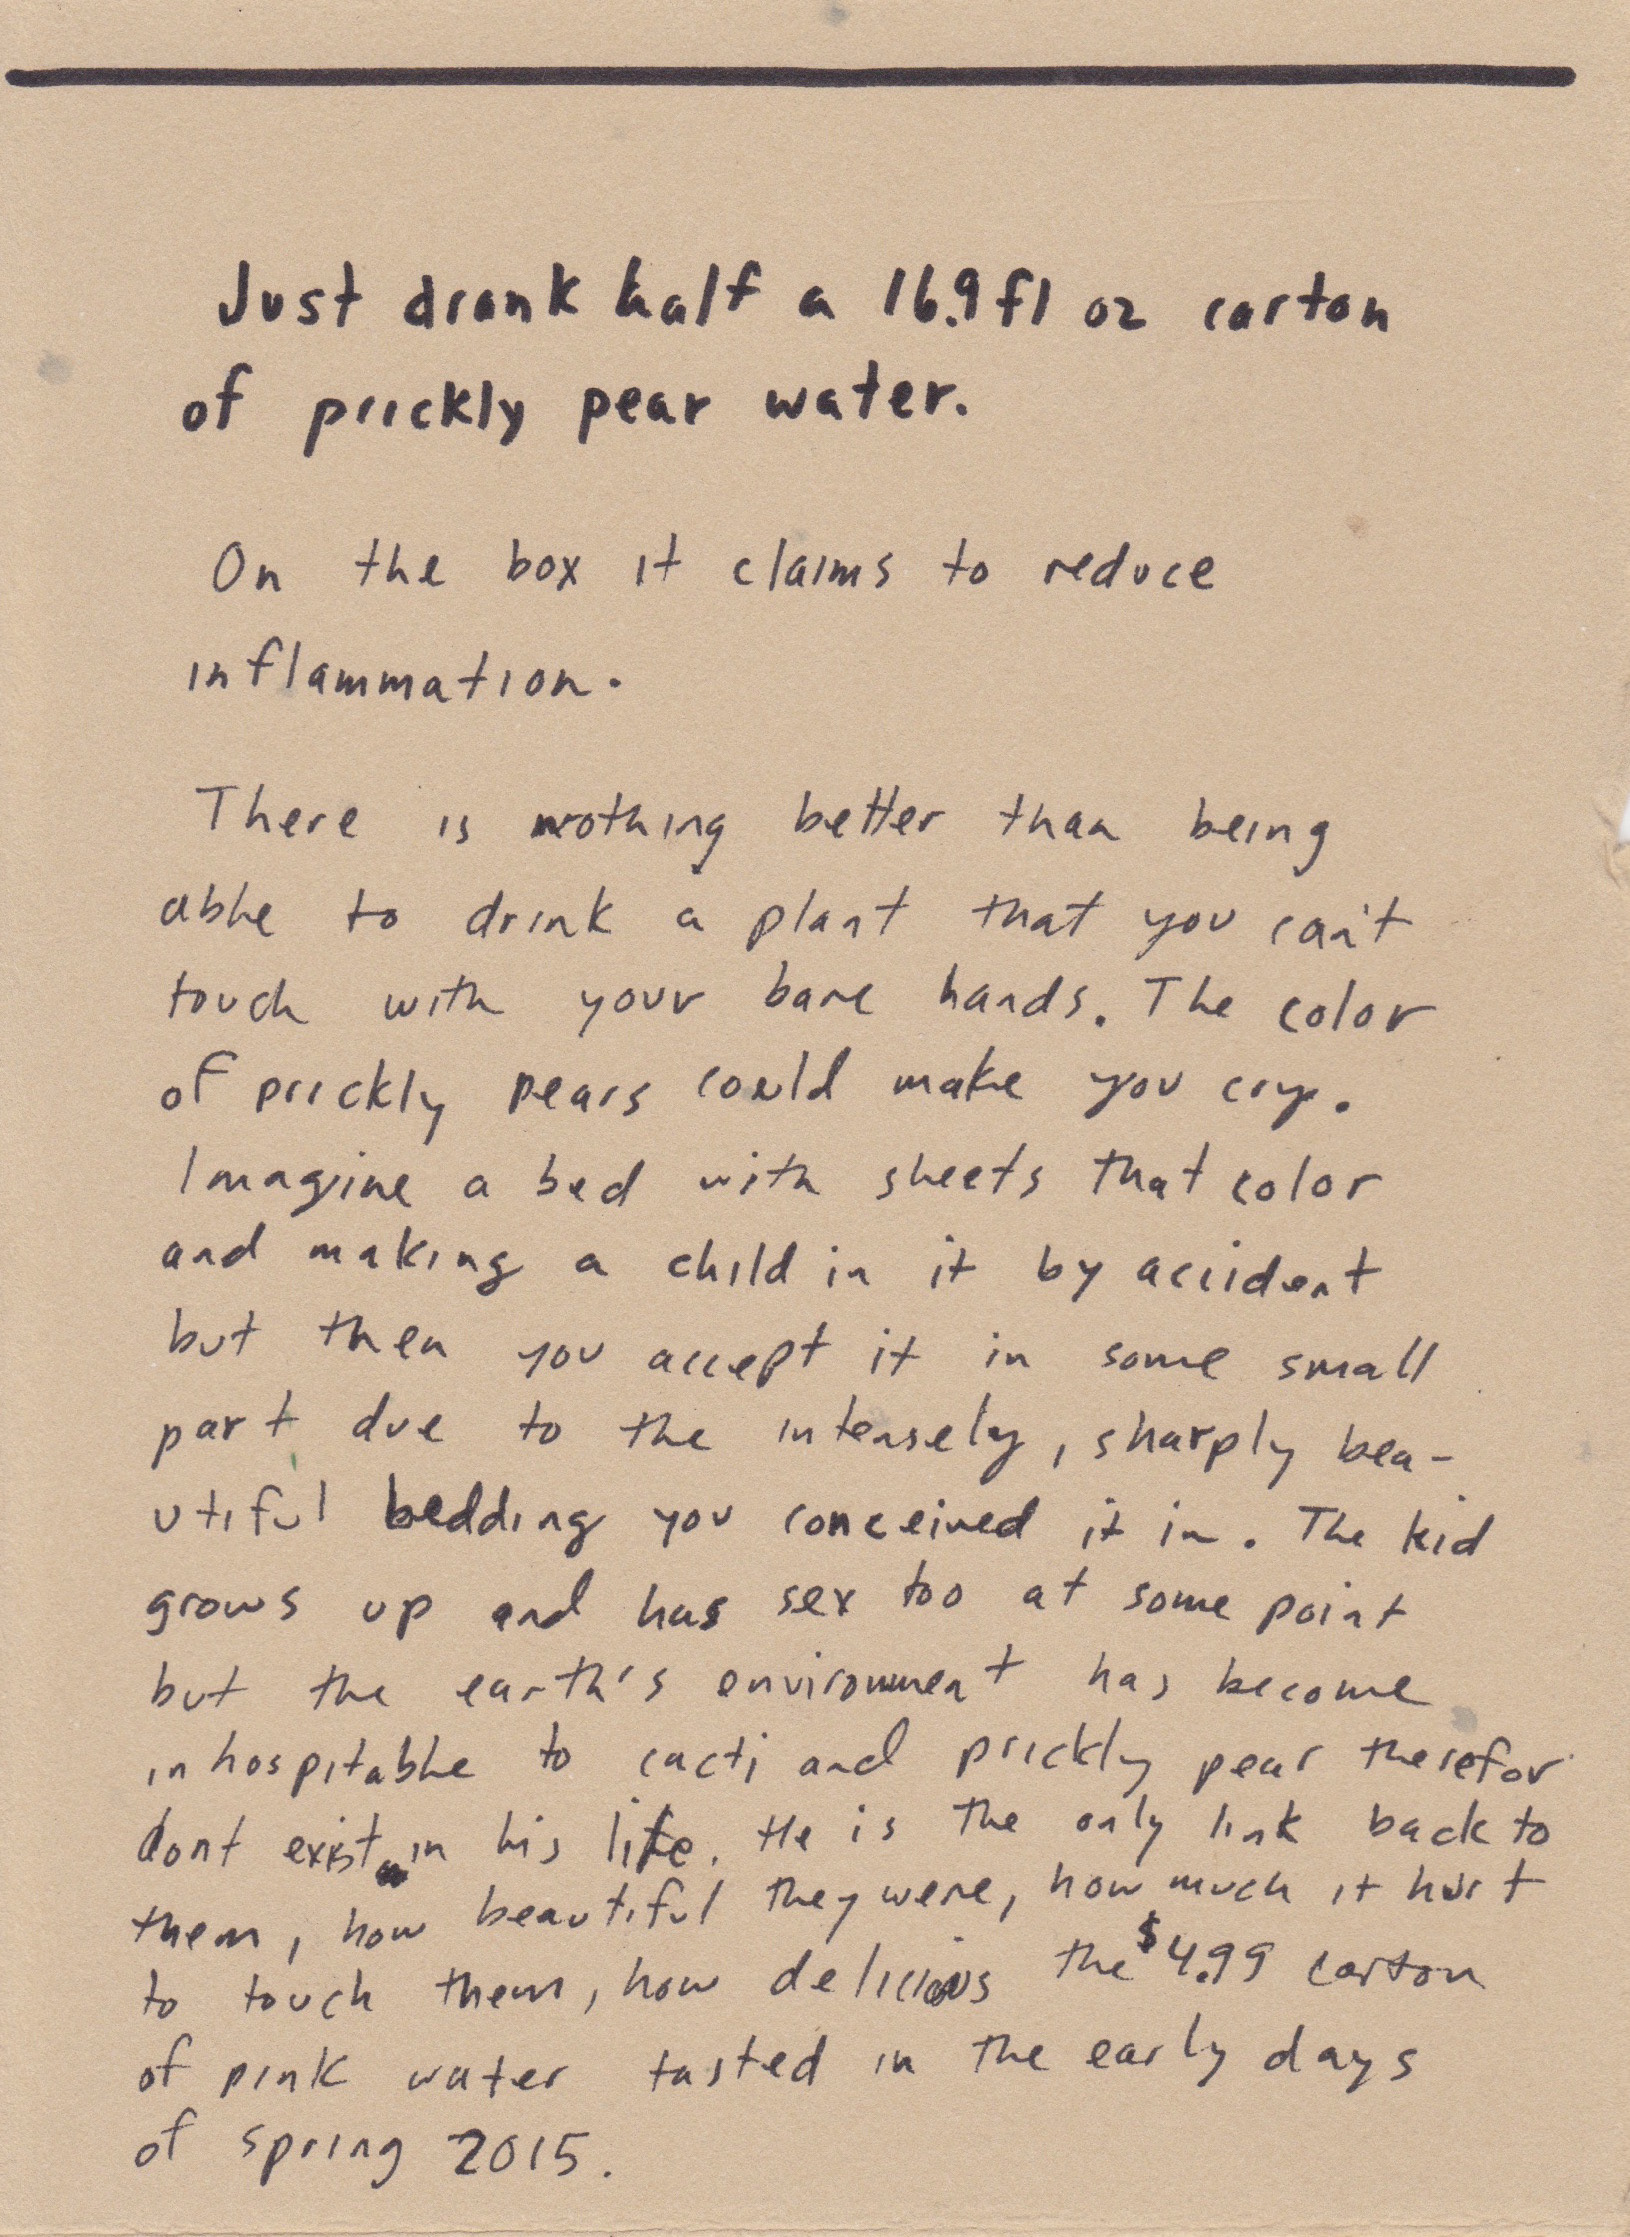 Just drank half a 16.9 fl oz carton
of prickly pear water.
On the box it claims to reduce
inflammation.
There is nothing better than being
able to drink a plant that you can't
touch with your bare hands. The color
of prickly pears could make you cry.
Imagine a bed with sheets that color
and making a child in it by accident
but then you accept it in some small
part due to the intensely, sharply bea-
utiful bedding you conceived it in. The kid
grows up and has sex too at some point
but the earth's environment has become
inhospitable to cacti and prickly pear therefor
dont exist in his life. He is the only link back to
them, how beautiful they were, how much it hurt
to touch them, how delicious the $4.99 carton
of pink water tasted in the early days
of spring 2015.